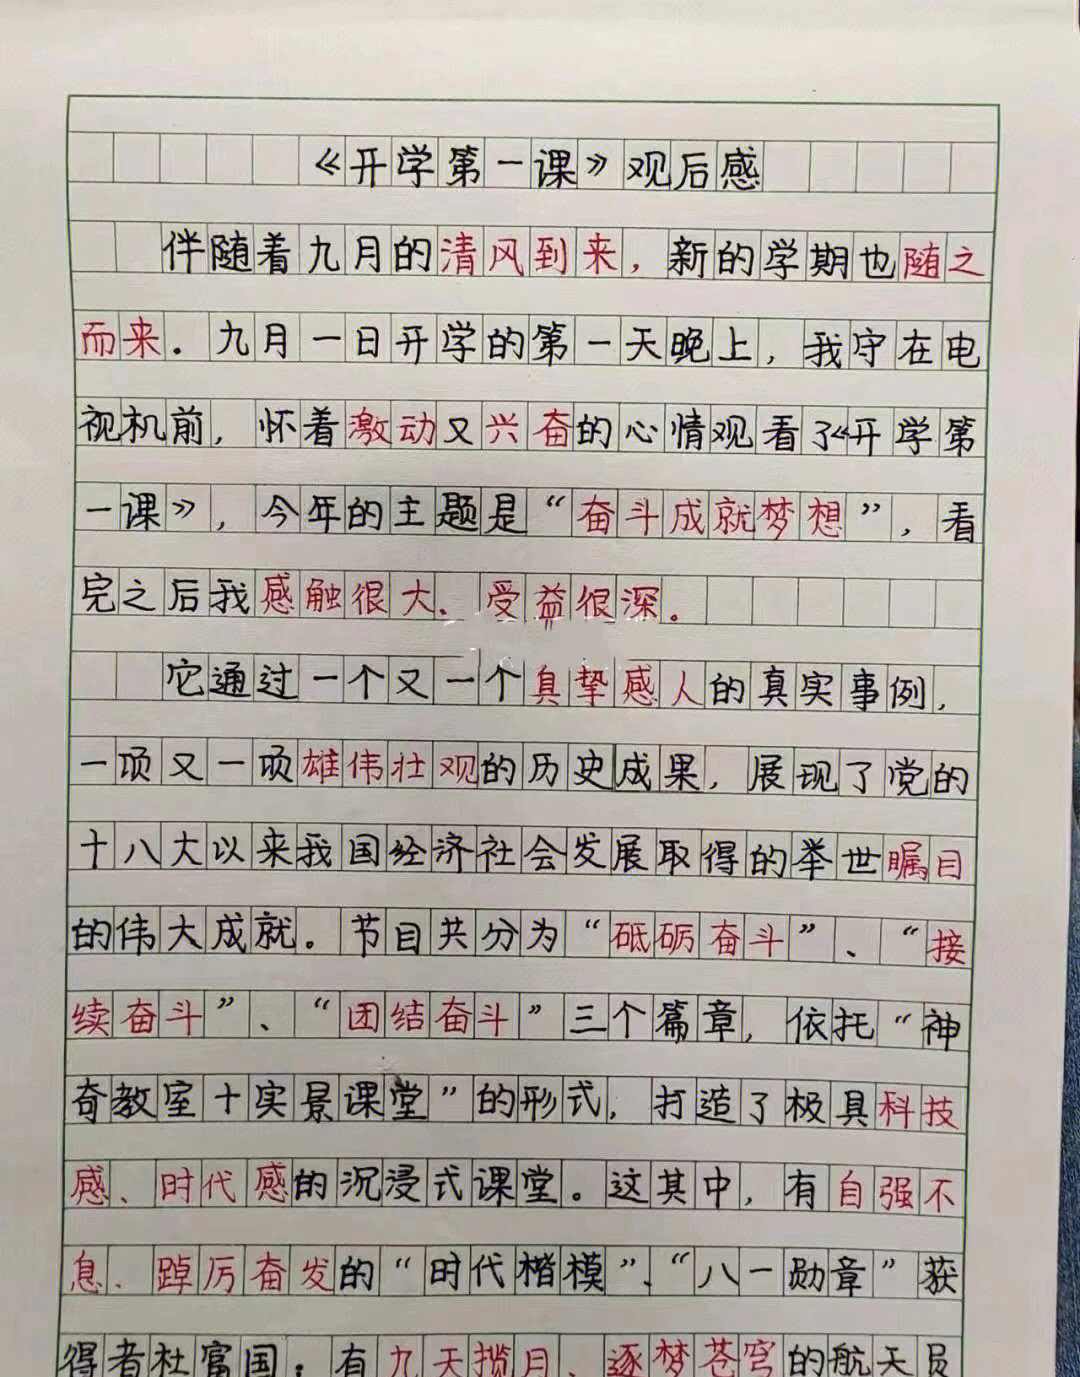 《开学第一课》观后感
伴随着九月的清风到来，新的学期也随之
而来。九月一日开学的第一天晚上，我守在电
视机前，怀着激动又兴奋的心情观看了《开学第
一课》，今年的主题是“奋斗成就梦想”，看
完之后我感触很大、受益很深。
它通过一个又一个真挚感人的真实事例，
一项又一项雄伟壮观的历史成果，展现了党的
十八大以来我国经济社会发展取得的举世瞩目
的伟大成就。节目共分为“砥砺奋斗”、“接
续奋斗”、“团结奋斗”三个篇章，依托“神
奇教室十实景课堂”的形式，打造了极具科技
感、时代感的沉浸式课堂。这其中，有自强不
息、踔厉奋发的“时代楷模”、“八一勋章”获
得者杜富国；有九天揽月、逐梦苍穹的航天员